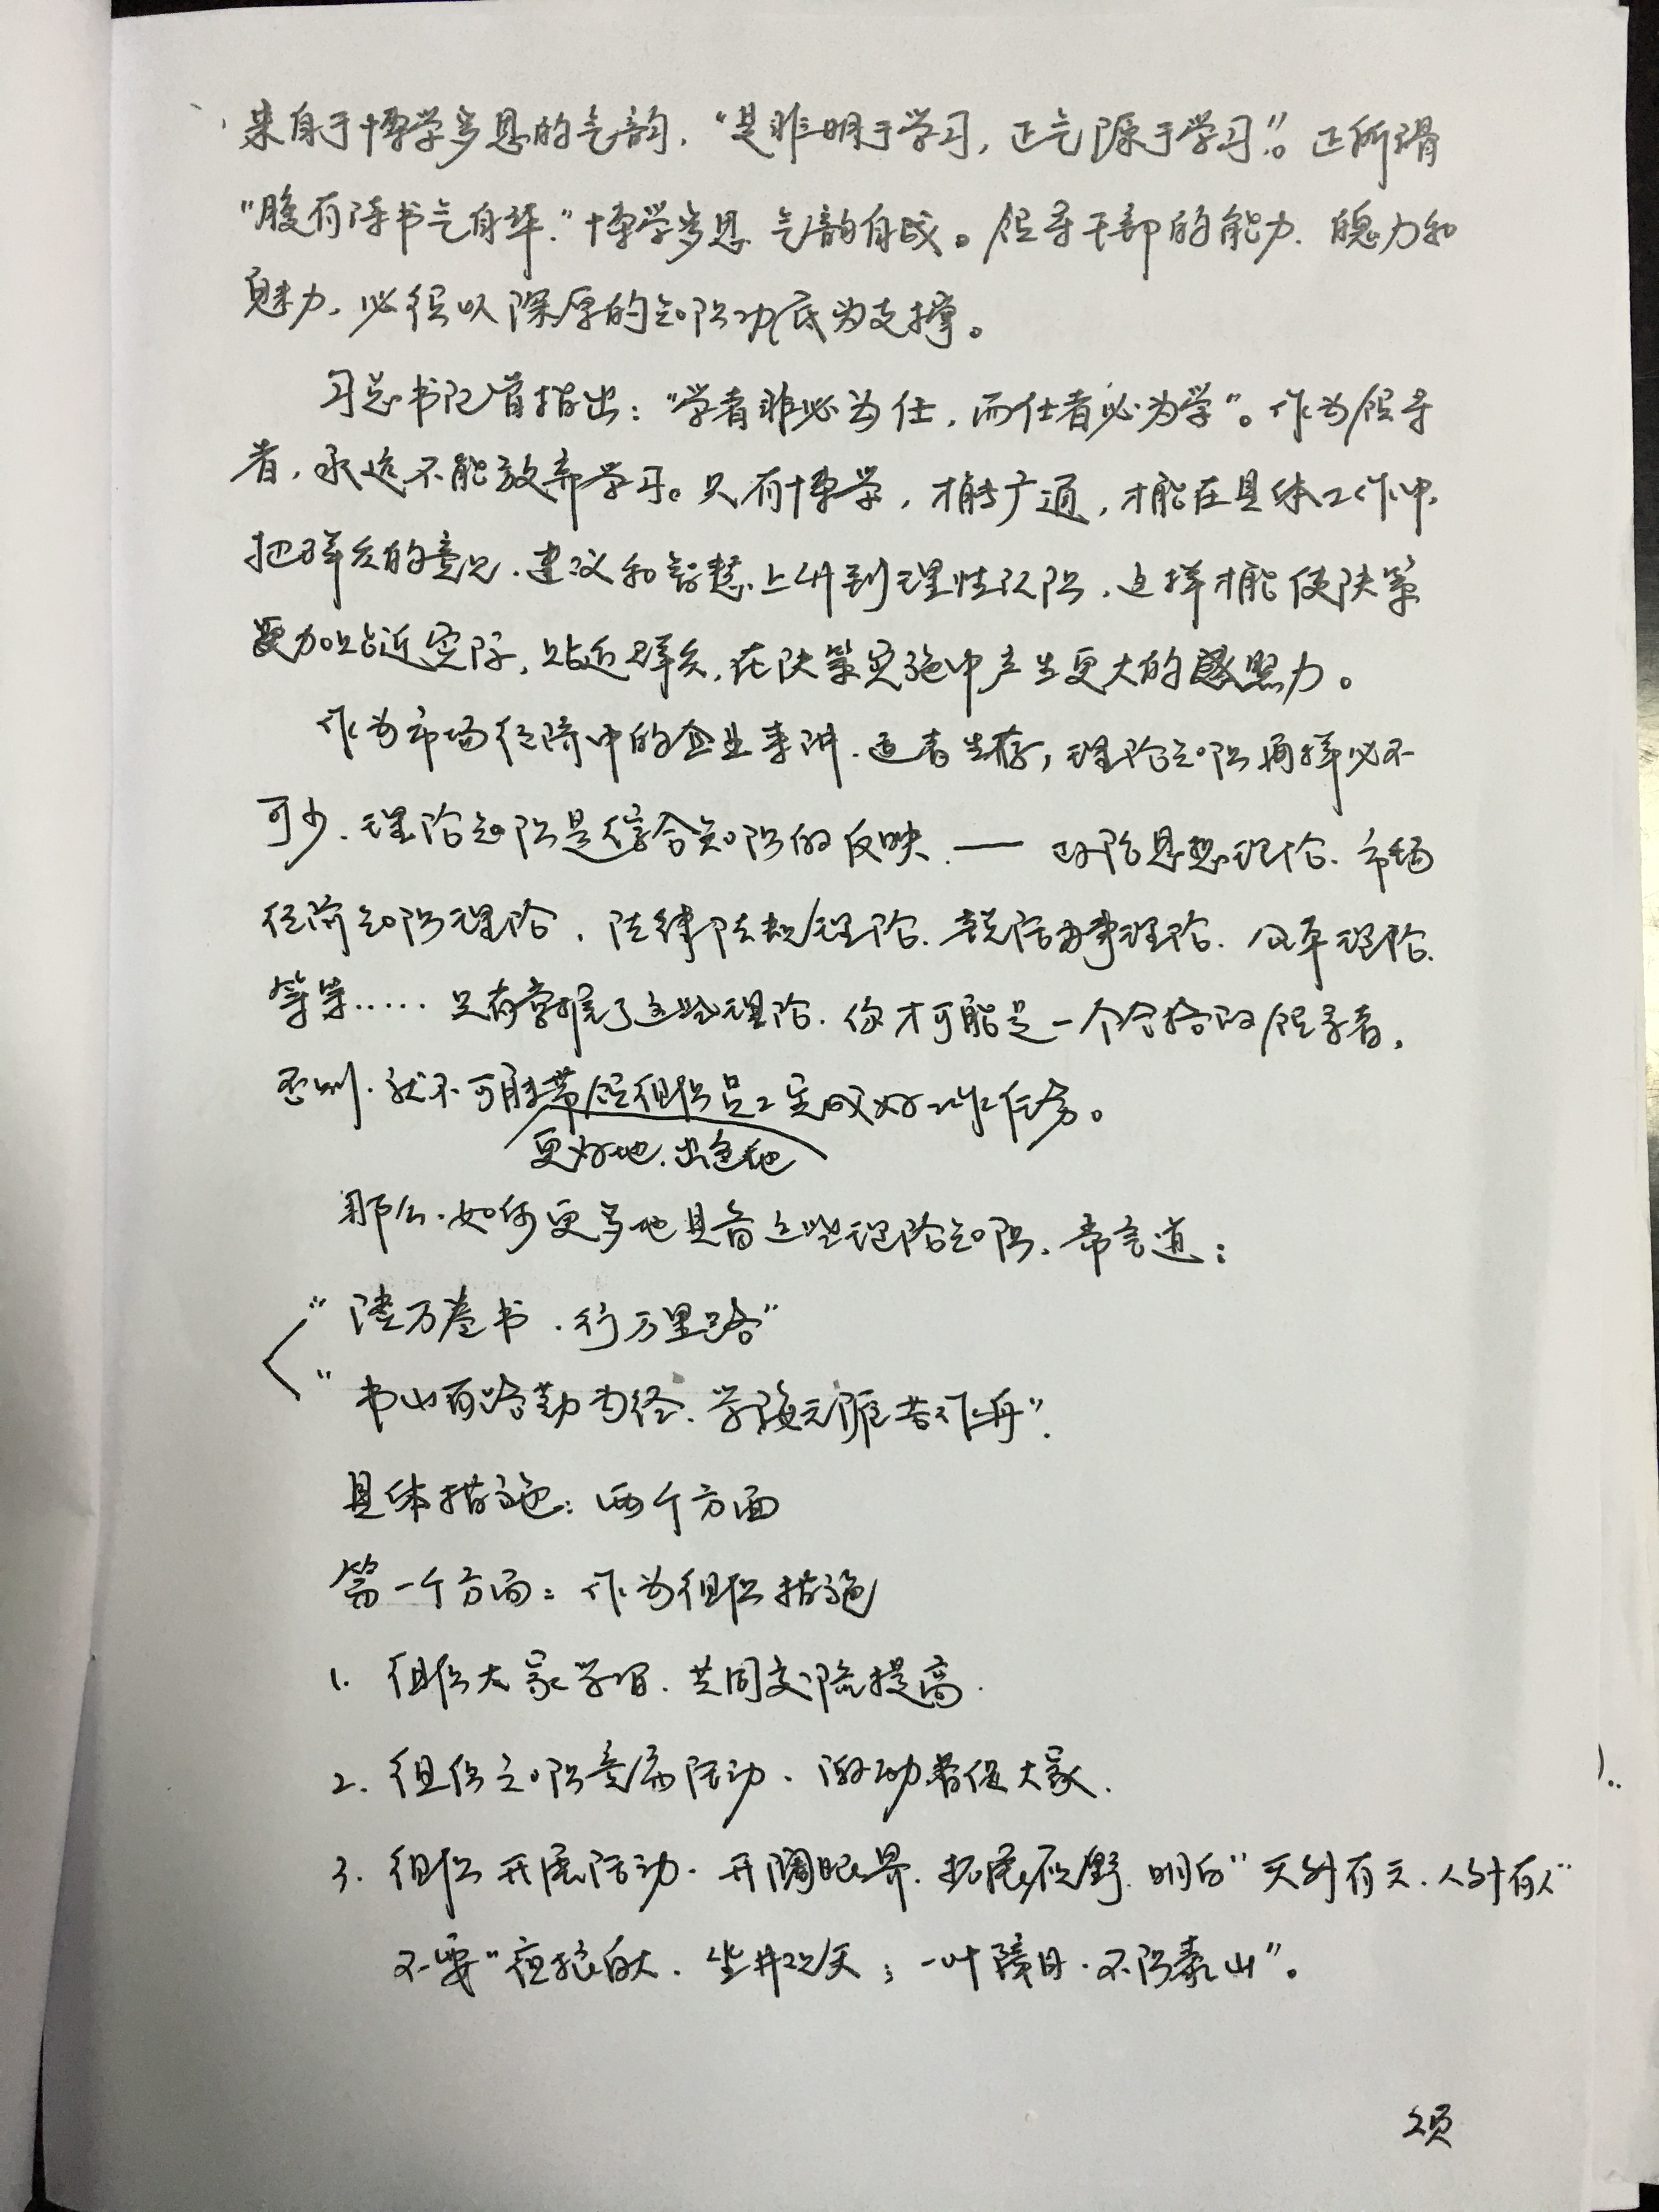 来自于博学多思的气韵，“是非明于学习，正气源于学习”。正所谓
“腹有诗书气自华。”博学多思、气韵自成。领导干部的能力、魄力和
魅力，必须以深厚的知识功底为支撑。
习总书记曾指出：“学者非必为仕，而仕者必为学”。作为领导
者，永远不能放弃学习。只有博学，才能广通，才能在具体工作中，
把群众的意见、建议和智慧、上升到理性认识，这样才能使决策
更加贴近实际，贴近群众，在决策实施中产生更大的感召力。
作为市场经济中的企业来讲、适者生存，理论知识同样必不
可少、理论知识是综合知识的反映、—— 政治思想理论、市场
经济知识理论、法律法规理论、说话办事理论、改革理论、
等等…… 只有掌握了这些理论、你才可能是一个合格的领导者，
否则、就不可能带领组织员工完成好工作任务。
更好地、出色地
那么、如何更多地具备这些理论知识、常言道：
“读万卷书、行万里路”
“书山有路勤为径、学海无涯苦作舟”.
具体措施：两个方面
第一个方面：作为组织措施
1. 组织大家学习、共同交流提高.
2. 组织知识竞赛活动、激励督促大家.
3. 组织开展活动、开阔眼界、拓展视野、明白“天外有天、人外有人”
不要“夜郎自大、坐井观天；一叶障目、不识泰山”。
2页